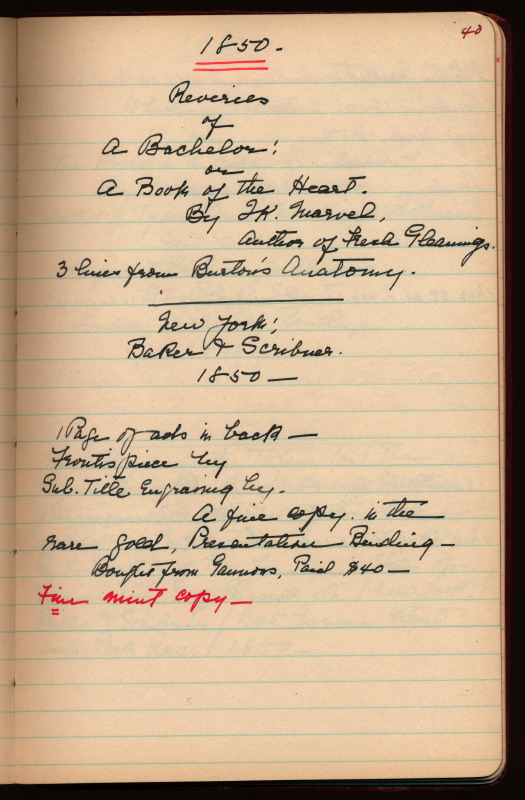 40
1850-
Reveries
of
A Bachelor:
or
A Book of the Heart.
By IK. Marvel,
Author of Fresh Gleanings.
3 lines from Burton's Anatomy.
New York;
Baker & Scribner.
1850—
1 Page of ads in back—
Frontispiece by
Sub. Title Engraving by.
A fine copy. in the
rare gold, Presentation Binding—
Bought from Gannons, Paid $40—
Fine mint copy—